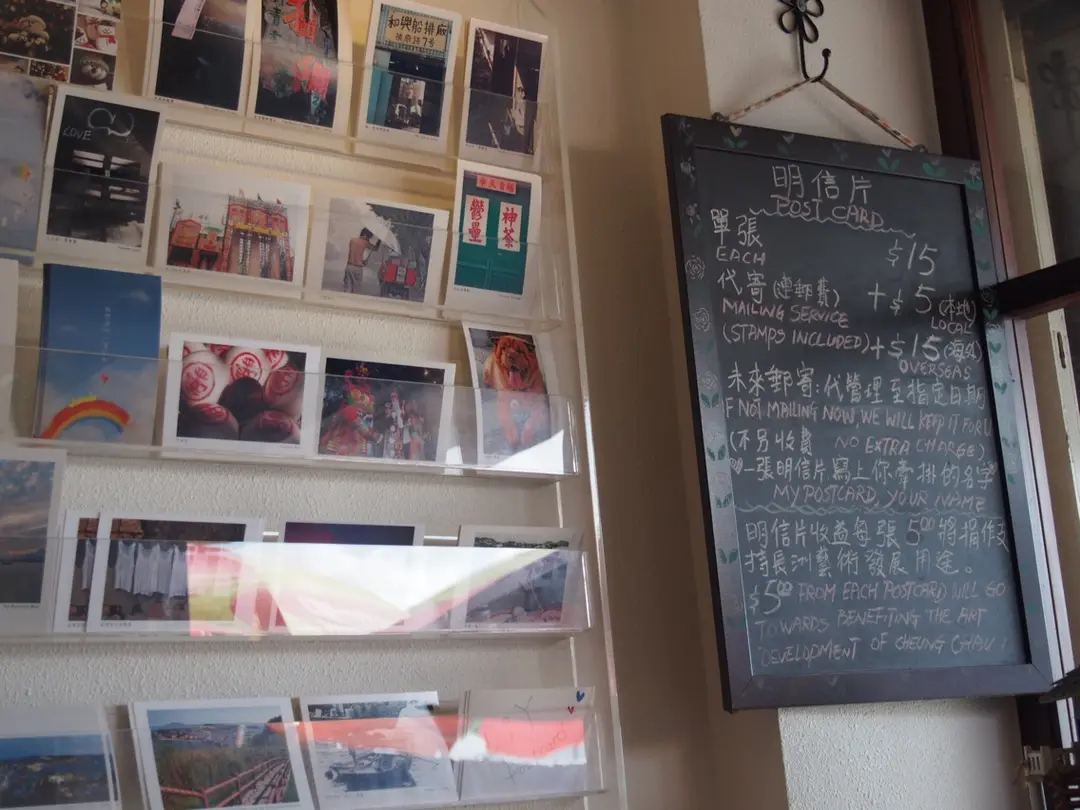 和興船排廠
LOVE
神荼
鬱壘
明信片
POST CARD
單張 $15
EACH
代寄(連郵費) +$5(本地)
MAILING SERVICE LOCAL
(STAMPS INCLUDED) +$15(海外)
OVERSEAS
未來郵寄:代管理至指定日期
F NOT MAILING NOW, WE WILL KEEP IT FOR U
(不另收費 NO EXTRA CHARGE)
一張明信片寫上你牽掛的名字
MY POSTCARD, YOUR NAME
明信片收益每張 5.00 將捐作支
持長洲藝術發展用途。
$5.00 FROM EACH POSTCARD WILL GO
TOWARDS BENEFITING THE ART
DEVELOPMENT OF CHEUNG CHAU!